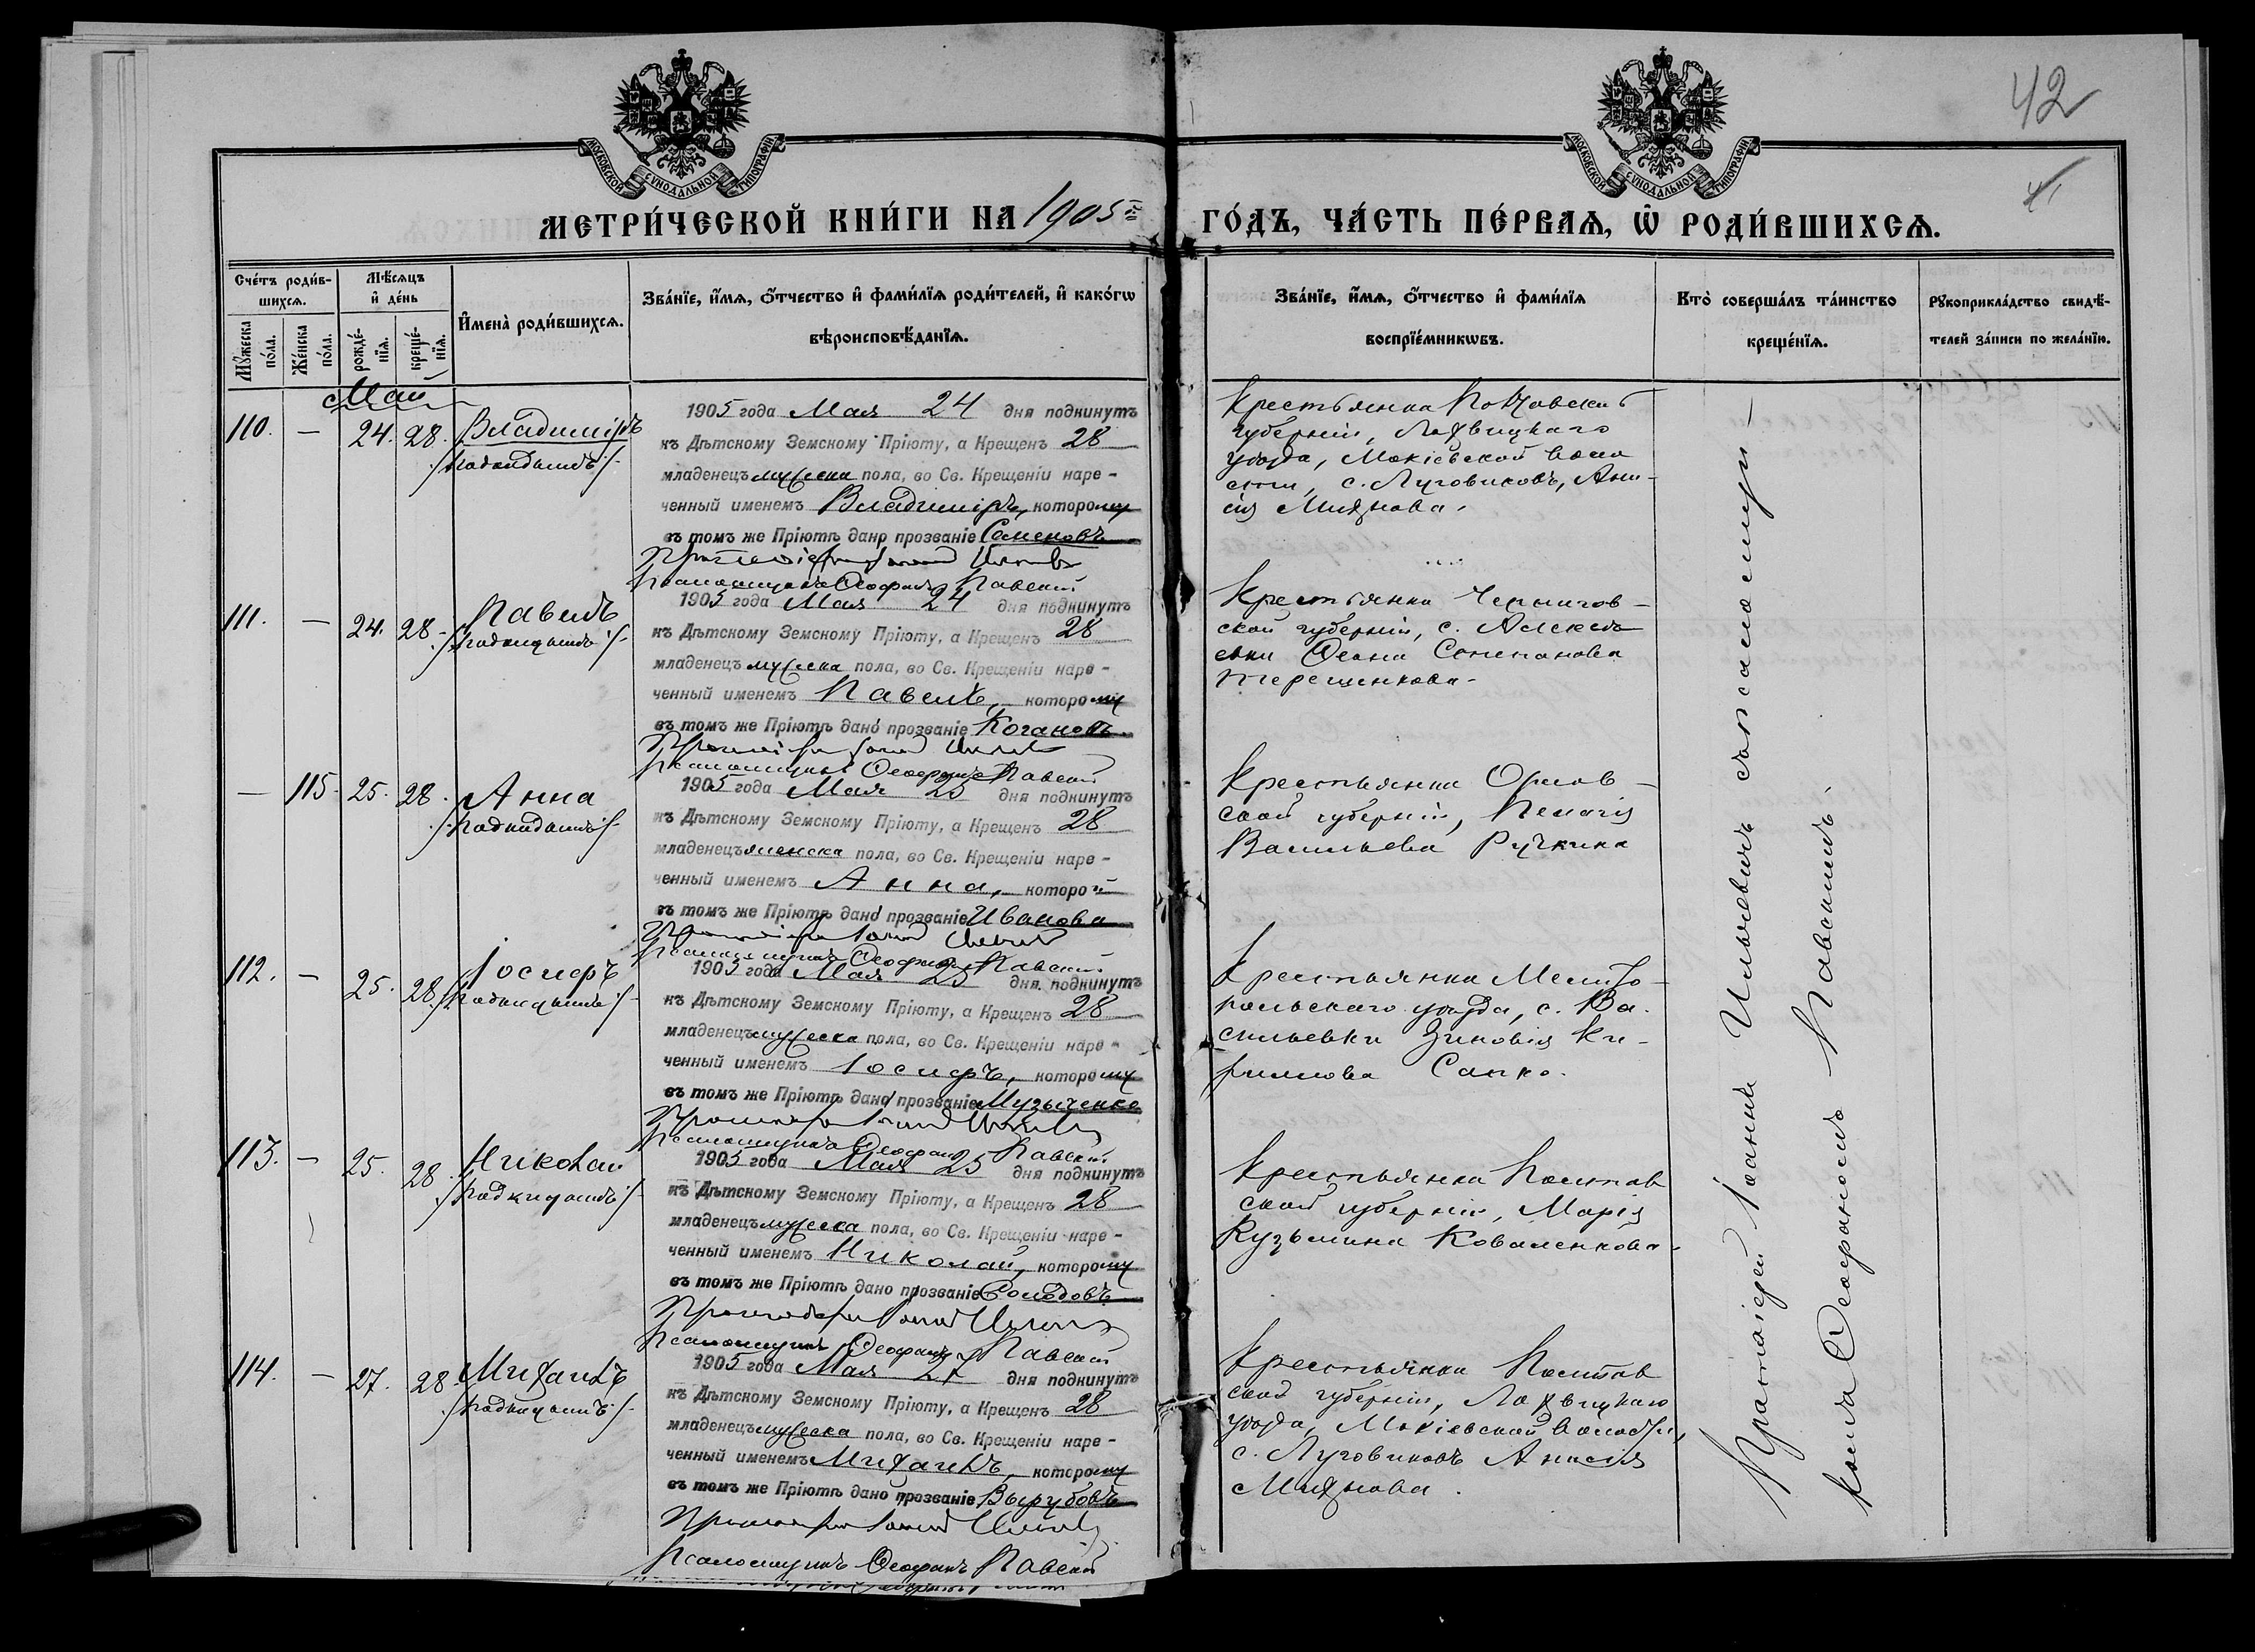 42
41
МОСКОВСКОЙ СѴНОДАЛЬНОЙ ТИПОГРАФІИ
МОСКОВСКОЙ СѴНОДАЛЬНОЙ ТИПОГРАФІИ
МЕТРИ́ЧЕСКОЙ КНИ́ГИ НА 1905й
ГО́ДЪ, ЧА́СТЬ ПЕ́РВАѦ, Ѡ҆ РОДИ́ВШИХСѦ.
Сче́тъ роди́в-
шихсѧ.
Мꙋ́жеска по́ла.
Же́нска по́ла.
Мѣ́сѧцъ
и҆ де́нь
рожде́-нїѧ.
креще́-нїѧ.
И҆мена̀ роди́вшихсѧ.
Зва́нїе, и҆́мѧ, ѻ҆́тчество и҆ фами́лїѧ роди́телей, и҆ како́гѡ
вѣроисповѣ́данїѧ.
Зва́нїе, и҆́мѧ, ѻ҆́тчество и҆ фами́лїѧ
воспрїе́мникѡвъ.
Кто̀ соверша́лъ та́инство
креще́нїѧ.
Рꙋкоприкла́дство свидѣ́-
телей за́писи по жела́нїю.
Май
110. — 24. 28. Владиміръ
/:подкидышъ:/
1905 года Мая 24 дня подкинутъ
къ Дѣтскому Земскому Пріюту, а Крещенъ 28
младенецъ мужеска пола, во Св. Крещеніи наре-
ченный именемъ Владиміръ, которому
въ томъ же Пріютѣ дано прозваніе Семеновъ
Псаломщикъ Ѳеофанъ Павскій
Крестьянка Полтавской
губерніи, Лохвицкаго
уѣзда, Мокіевской воло
сти, с. Луговиковъ, Ани-
сія
111. — 24. 28. Павелъ
/:подкидышъ:/
1905 года Мая 24 дня подкинутъ
къ Дѣтскому Земскому Пріюту, а Крещенъ 28
младенецъ мужеска пола, во Св. Крещеніи наре-
ченный именемъ Павелъ, которому
въ томъ же Пріютѣ дано прозваніе Когановъ
Псаломщикъ Ѳеофанъ Павскій
Крестьянка Чернигов-
ской губерніи, с. Алексѣ
евки Степанова
Терещенкова.
— 115. 25. 28. Анна
/:подкидышъ:/
1905 года Мая 25 дня подкинутъ
къ Дѣтскому Земскому Пріюту, а Крещенъ 28
младенецъ женска пола, во Св. Крещеніи наре-
ченный именемъ Анна, которой
въ томъ же Пріютѣ дано прозваніе Иванова
Псаломщикъ Ѳеофанъ Павскій
Крестьянка Орлов-
ской губерніи, Пелагія
Васильева Ручкина
112. — 25. 28. Іосифъ
/:подкидышъ:/
1905 года Мая 25 дня подкинутъ
къ Дѣтскому Земскому Пріюту, а Крещенъ 28
младенецъ мужеска пола, во Св. Крещеніи наре-
ченный именемъ Іосифъ, которому
въ томъ же Пріютѣ дано прозваніе Музыченко
Псаломщикъ Ѳеофанъ Павскій
Крестьянка Мелито-
польскаго уѣзда, с. Ва-
сильевки Зиновія Ки-
риллова Сапко.
113. — 25. 28. Николай
/:подкидышъ:/
1905 года Мая 25 дня подкинутъ
къ Дѣтскому Земскому Пріюту, а Крещенъ 28
младенецъ мужеска пола, во Св. Крещеніи наре-
ченный именемъ Николай, которому
въ томъ же Пріютѣ дано прозваніе Солодовъ
Псаломщикъ Ѳеофанъ Павскій
Крестьянка Полтав
ской губерніи, Марія
Кузьмина Коваленкова.
114. — 27. 28. Михаилъ
/:подкидышъ:/
1905 года Мая 27 дня подкинутъ
къ Дѣтскому Земскому Пріюту, а Крещенъ 28
младенецъ мужеска пола, во Св. Крещеніи наре-
ченный именемъ Михаилъ, которому
въ томъ же Пріютѣ дано прозваніе Вырубовъ
Псаломщикъ Ѳеофанъ Павскій
Крестьянка Полтав
ской губерніи, Лохвицкаго
уѣзда, Мокіевской волости,
с. Луговиковъ Анисія
Протоіерей Іоаннъ Ильичевъ съ псаломщи-
комъ Ѳеофаномъ Павскимъ.